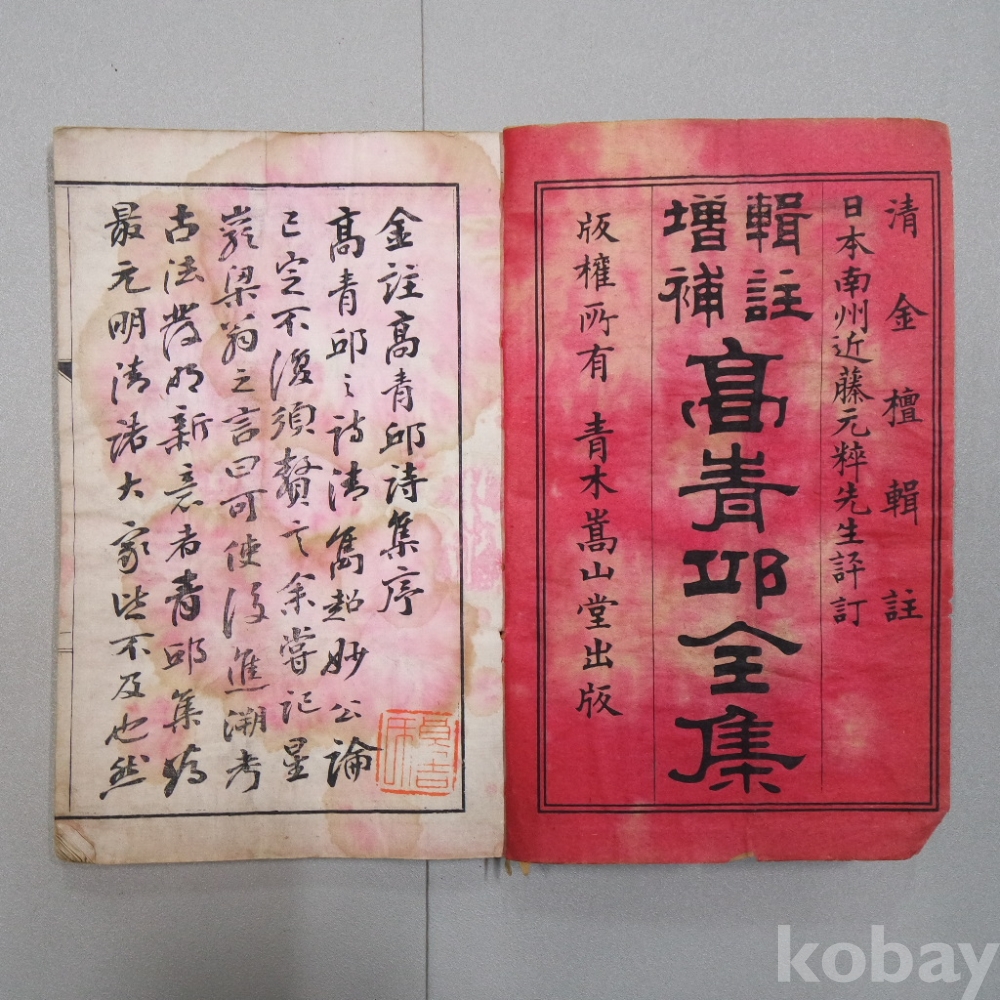 清金檀輯註
日本南州近藤元粹先生評訂
輯註
增補
高青邱全集
版權所有 青木嵩山堂出版
金註高青邱詩集序
高青邱之詩清雋超妙公論
已定不復須贅言余嘗記星
巖梁翁之言曰可使後進溯考
古法發明新意者青邱集為
最元明清諸大家皆不及也然
kobay